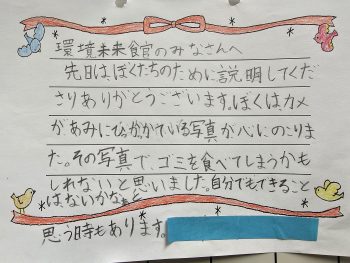 環境未来館のみなさんへ
先日は、ぼくたちのために説明してくだ
さりありがとうございます。ぼくは、カメ
があみにひっかかている写真が心にのこりまし
た。その写真で、ゴミを食べてしまうかも
しれないと思いました。自分でもできること
はないかなぁと
思う時もあります。